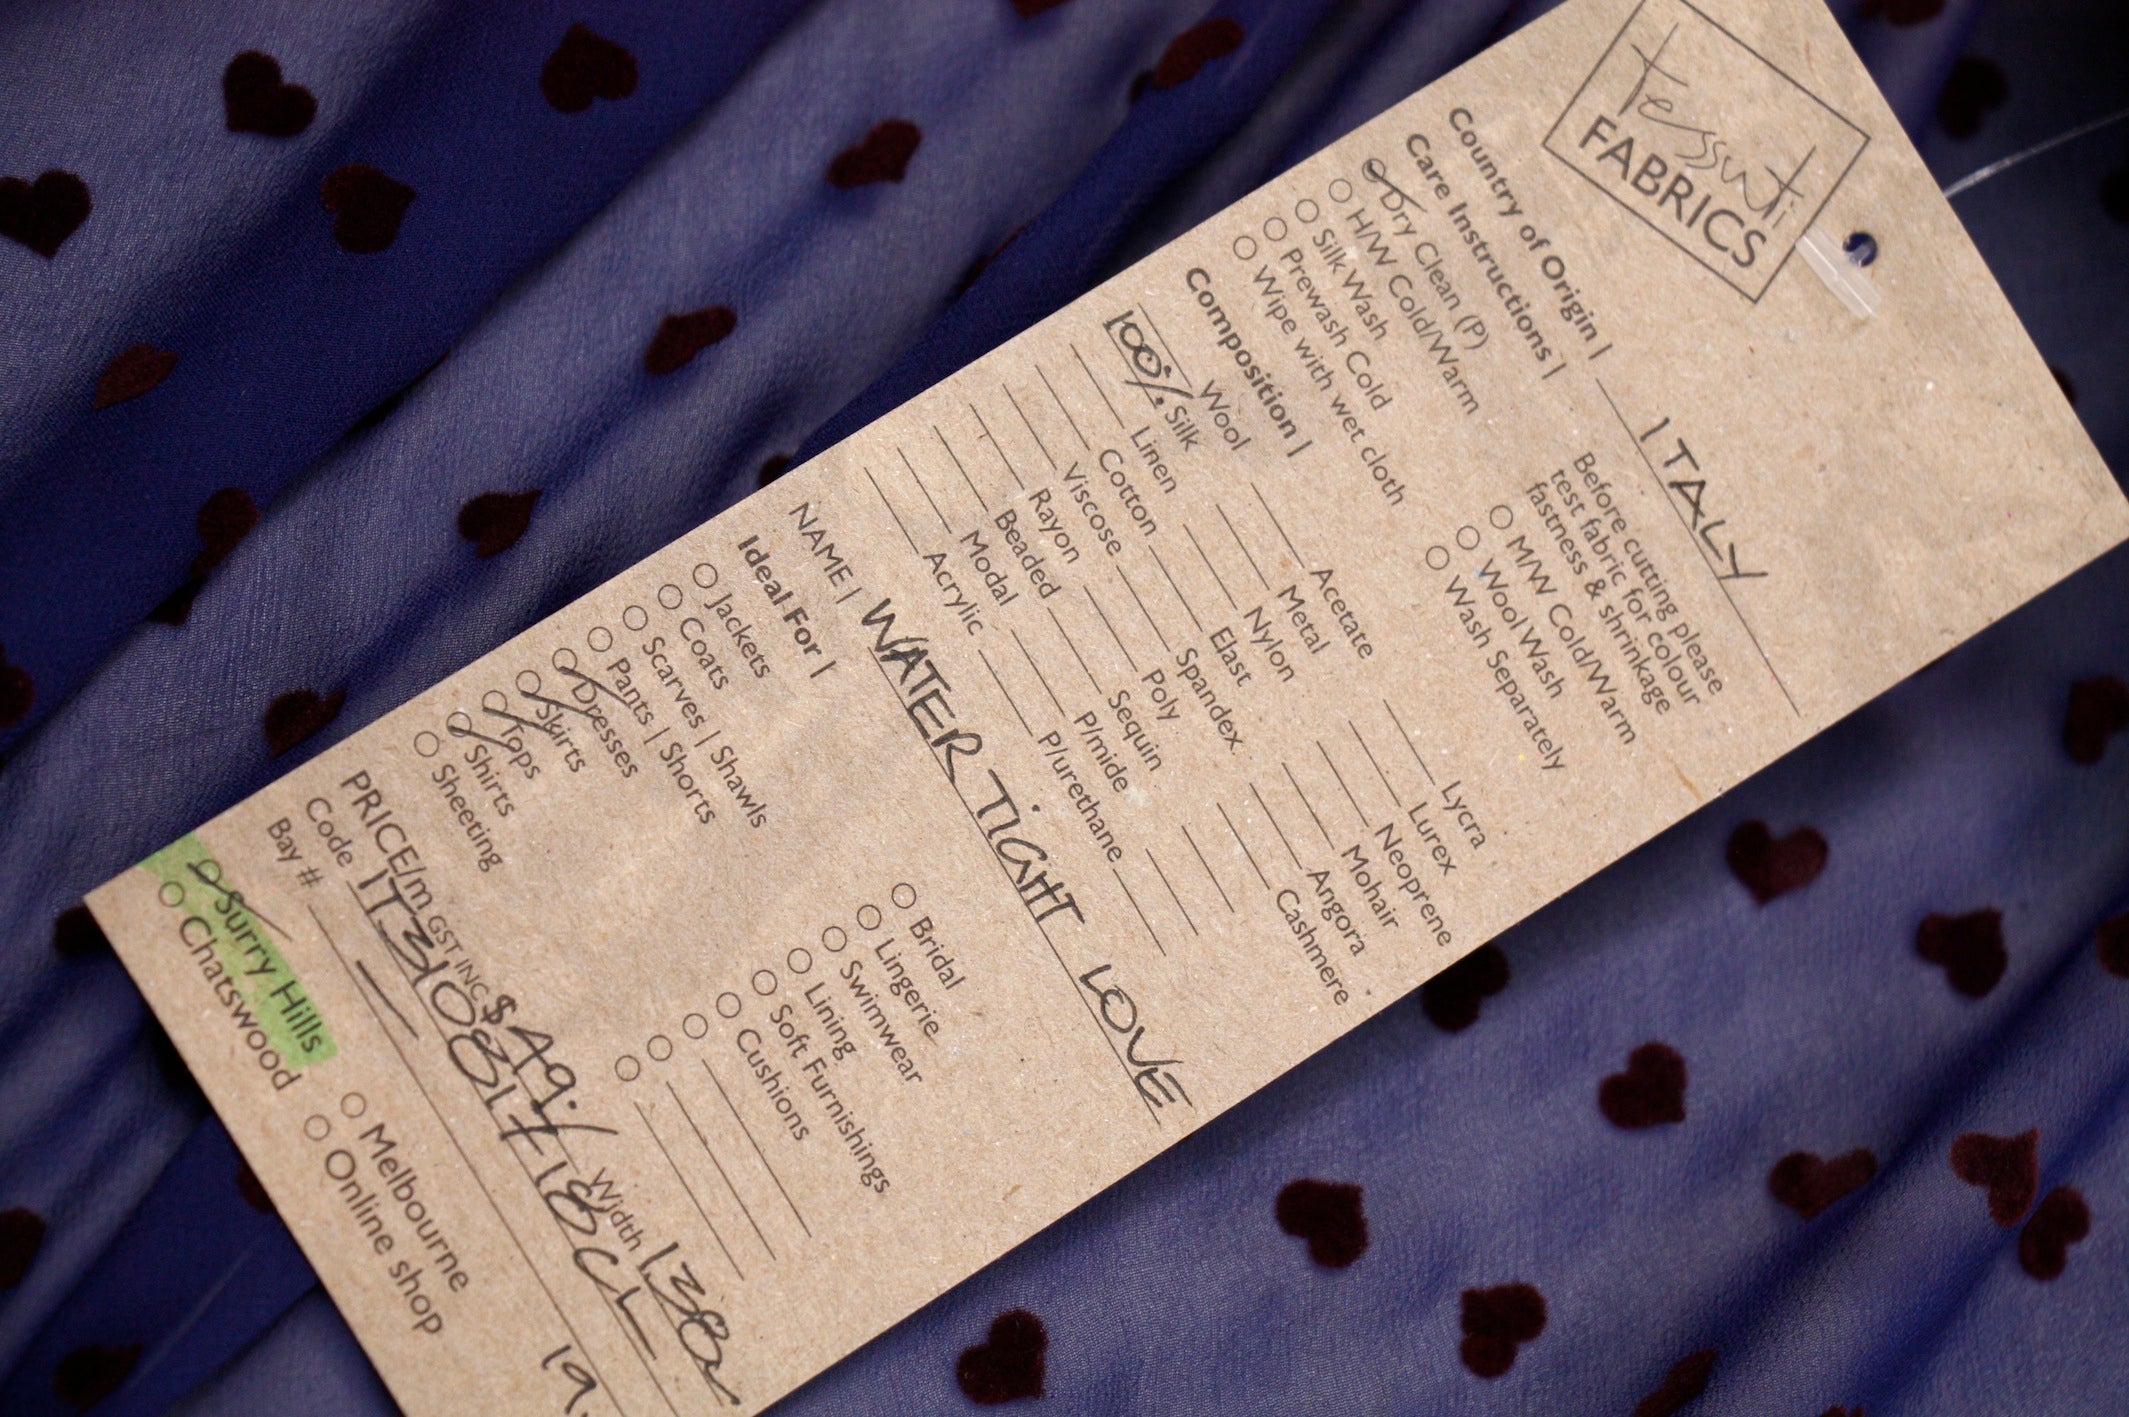 Tessuti
FABRICS
Country of Origin | ITALY
Care Instructions |
Before cutting please
test fabric for colour
fastness & shrinkage
Dry Clean (P)
H/W Cold/Warm
Silk Wash
Prewash Cold
Wipe with wet cloth
M/W Cold/Warm
Wool Wash
Wash Separately
Composition |
Wool
100% Silk
Linen
Cotton
Viscose
Rayon
Beaded
Modal
Acrylic
Acetate
Metal
Nylon
Elast
Spandex
Poly
Sequin
P/mide
P/urethane
Lycra
Lurex
Neoprene
Mohair
Angora
Cashmere
NAME | WATER TIGHT LOVE
Ideal For |
Jackets
Coats
Scarves | Shawls
Pants | Shorts
Dresses
Skirts
Tops
Shirts
Sheeting
Bridal
Lingerie
Swimwear
Lining
Soft Furnishings
Cushions
PRICE/m GST INC $49. Width 138
Code
Bay # —
Surry Hills
Chatswood
Melbourne
Online shop
19.